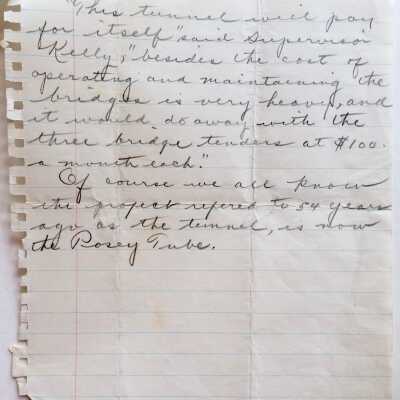 "This tunnel will pay
for itself" said Supervisor
Kelly," besides the cost of
operating and maintaining the
bridges is very heavy, and
it would do away with the
three bridge tenders at $100.
a month each."
Of course we all know
the project refered to 54 years
ago as the tunnel, is now
the Posey Tube.